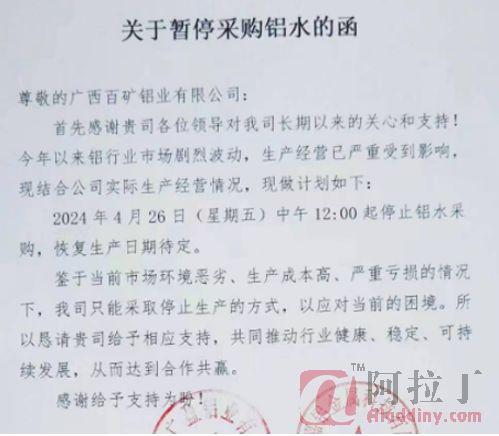 关于暂停采购铝水的函
尊敬的广西百矿铝业有限公司：
首先感谢贵司各位领导对我司长期以来的关心和支持！
今年以来铝行业市场剧烈波动，生产经营已严重受到影响，
现结合公司实际生产经营情况，现做计划如下：
2024年4月26日（星期五）中午12:00起停止铝水采
购，恢复生产日期待定。
鉴于当前市场环境恶劣、生产成本高、严重亏损的情况
下，我司只能采取停止生产的方式，以应对当前的困境。所
以恳请贵司给予相应支持，共同推动行业健康、稳定、可持
续发展，从而达到合作共赢。
感谢给予支持为盼！
TM
阿拉丁
Aladdiny.com